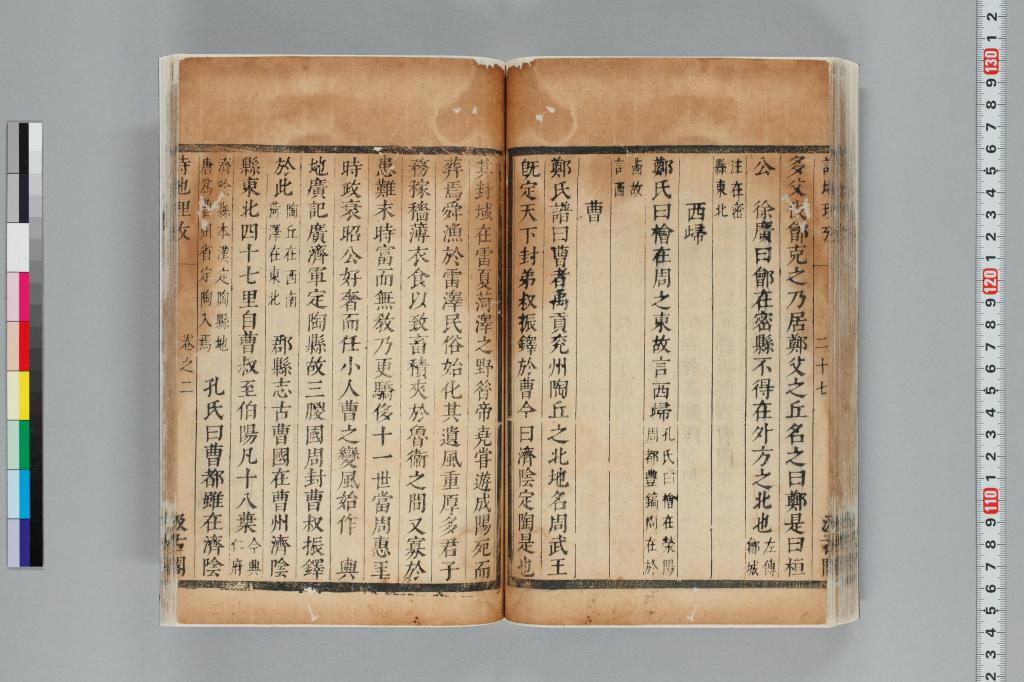 多父伐鄶克之乃居鄭父之丘名之曰鄭是曰桓
公　徐廣曰鄶在密縣不得在外方之北也左傳
鄶城
注在密
縣東北
西歸
鄭氏曰檜在周之東故言西歸孔氏曰檜在滎陽
周都豐鎬周在於
西故
言西
曹
鄭氏譜曰曹者禹貢兖州陶丘之北地名周武王
旣定天下封弟叔振鐸於曹今曰濟陰定陶是也
其封域在雷夏菏澤之野昔帝堯甞遊成陽死而
葬焉舜漁於雷澤民俗始化其遺風重厚多君子
務稼穡薄衣食以致畜積夾於魯衞之間又寡於
患難末時富而無敎乃更驕侈十一世當周惠王
時政衰昭公好奢而任小人曹之變風始作　輿
地廣記廣濟軍定陶縣故三朡國周封曹叔振鐸
於此陶丘在西南
菏澤在東北
郡縣志古曹國在曹州濟陰
縣東北四十七里自曹叔至伯陽凡十八葉今興
仁府
濟陰縣本漢定陶縣地
唐爲曹州省定陶入焉
孔氏曰曹都雖在濟陰
詩地理攷
卷之二
汲古閣
二十七